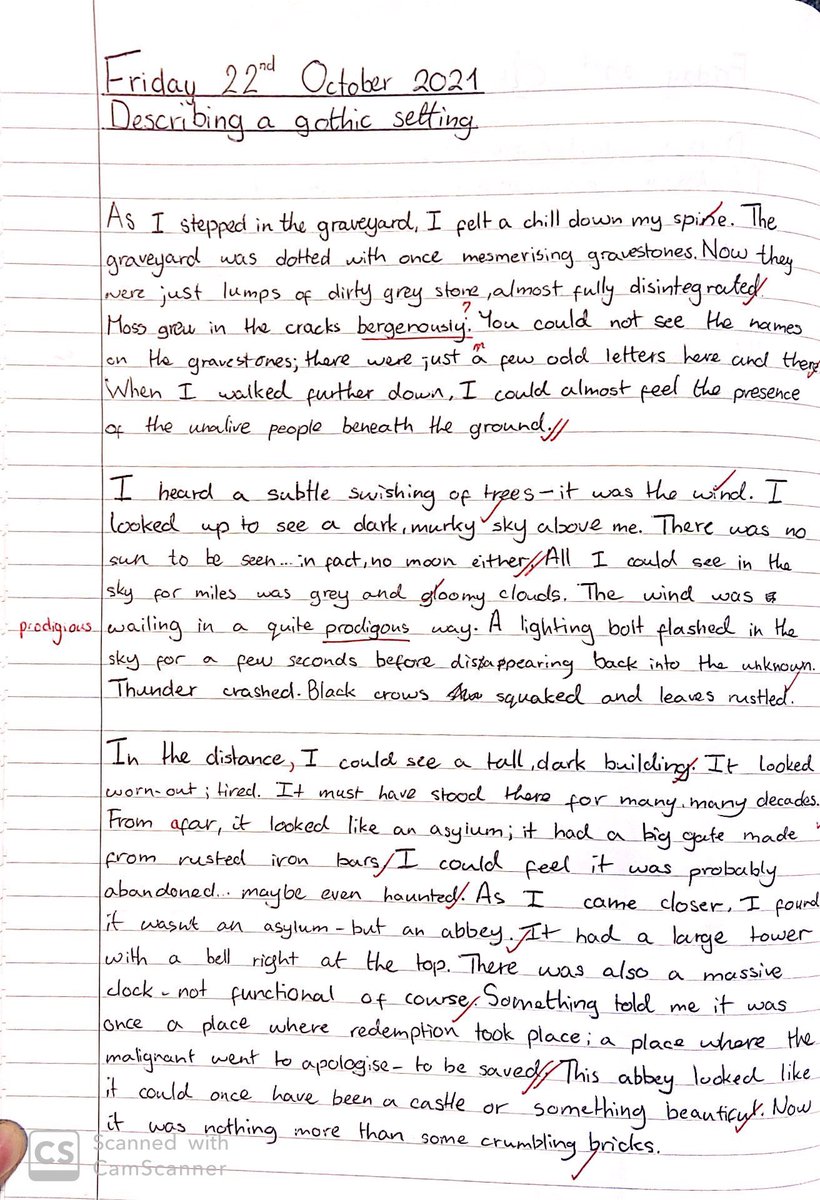 Friday 22nd October 2021
Describing a gothic setting
As I stepped in the graveyard, I felt a chill down my spine. The
graveyard was dotted with once mesmerising gravestones. Now they
were just lumps of dirty grey stone, almost fully disintegrated
?
Moss grew in the cracks bergenously. You could not see the names
on the gravestones; there were just a few odd letters here and there
When I walked further down, I could almost feel the presence
of the unalive people beneath the ground.
I heard a subtle swishing of trees - it was the wind. I
looked up to see a dark, murky sky above me. There was no
sun to be seen... in fact, no moon either. All I could see in the
sky for miles was grey and gloomy clouds. The wind was
prodigious wailing in a quite prodigous way. A lighting bolt flashed in the
sky for a few seconds before dissappearing back into the unknown.
Thunder crashed. Black crows squaked and leaves rustled.
In the distance, I could see a tall, dark building. It looked
worn-out; tired. It must have stood there for many, many decades.
From afar, it looked like an asylum; it had a big gate made
from rusted iron bars. I could feel it was probably
abandoned... maybe even haunted. As I came closer, I found
it wasn't an asylum - but an abbey. It had a large tower
with a bell right at the top. There was also a massive
clock - not functional of course. Something told me it was
once a place where redemption took place; a place where the
malignant went to apologise - to be saved. This abbey looked like
it could once have been a castle or something beautiful. Now
it was nothing more than some crumbling bricks.
CS Scanned with
CamScanner